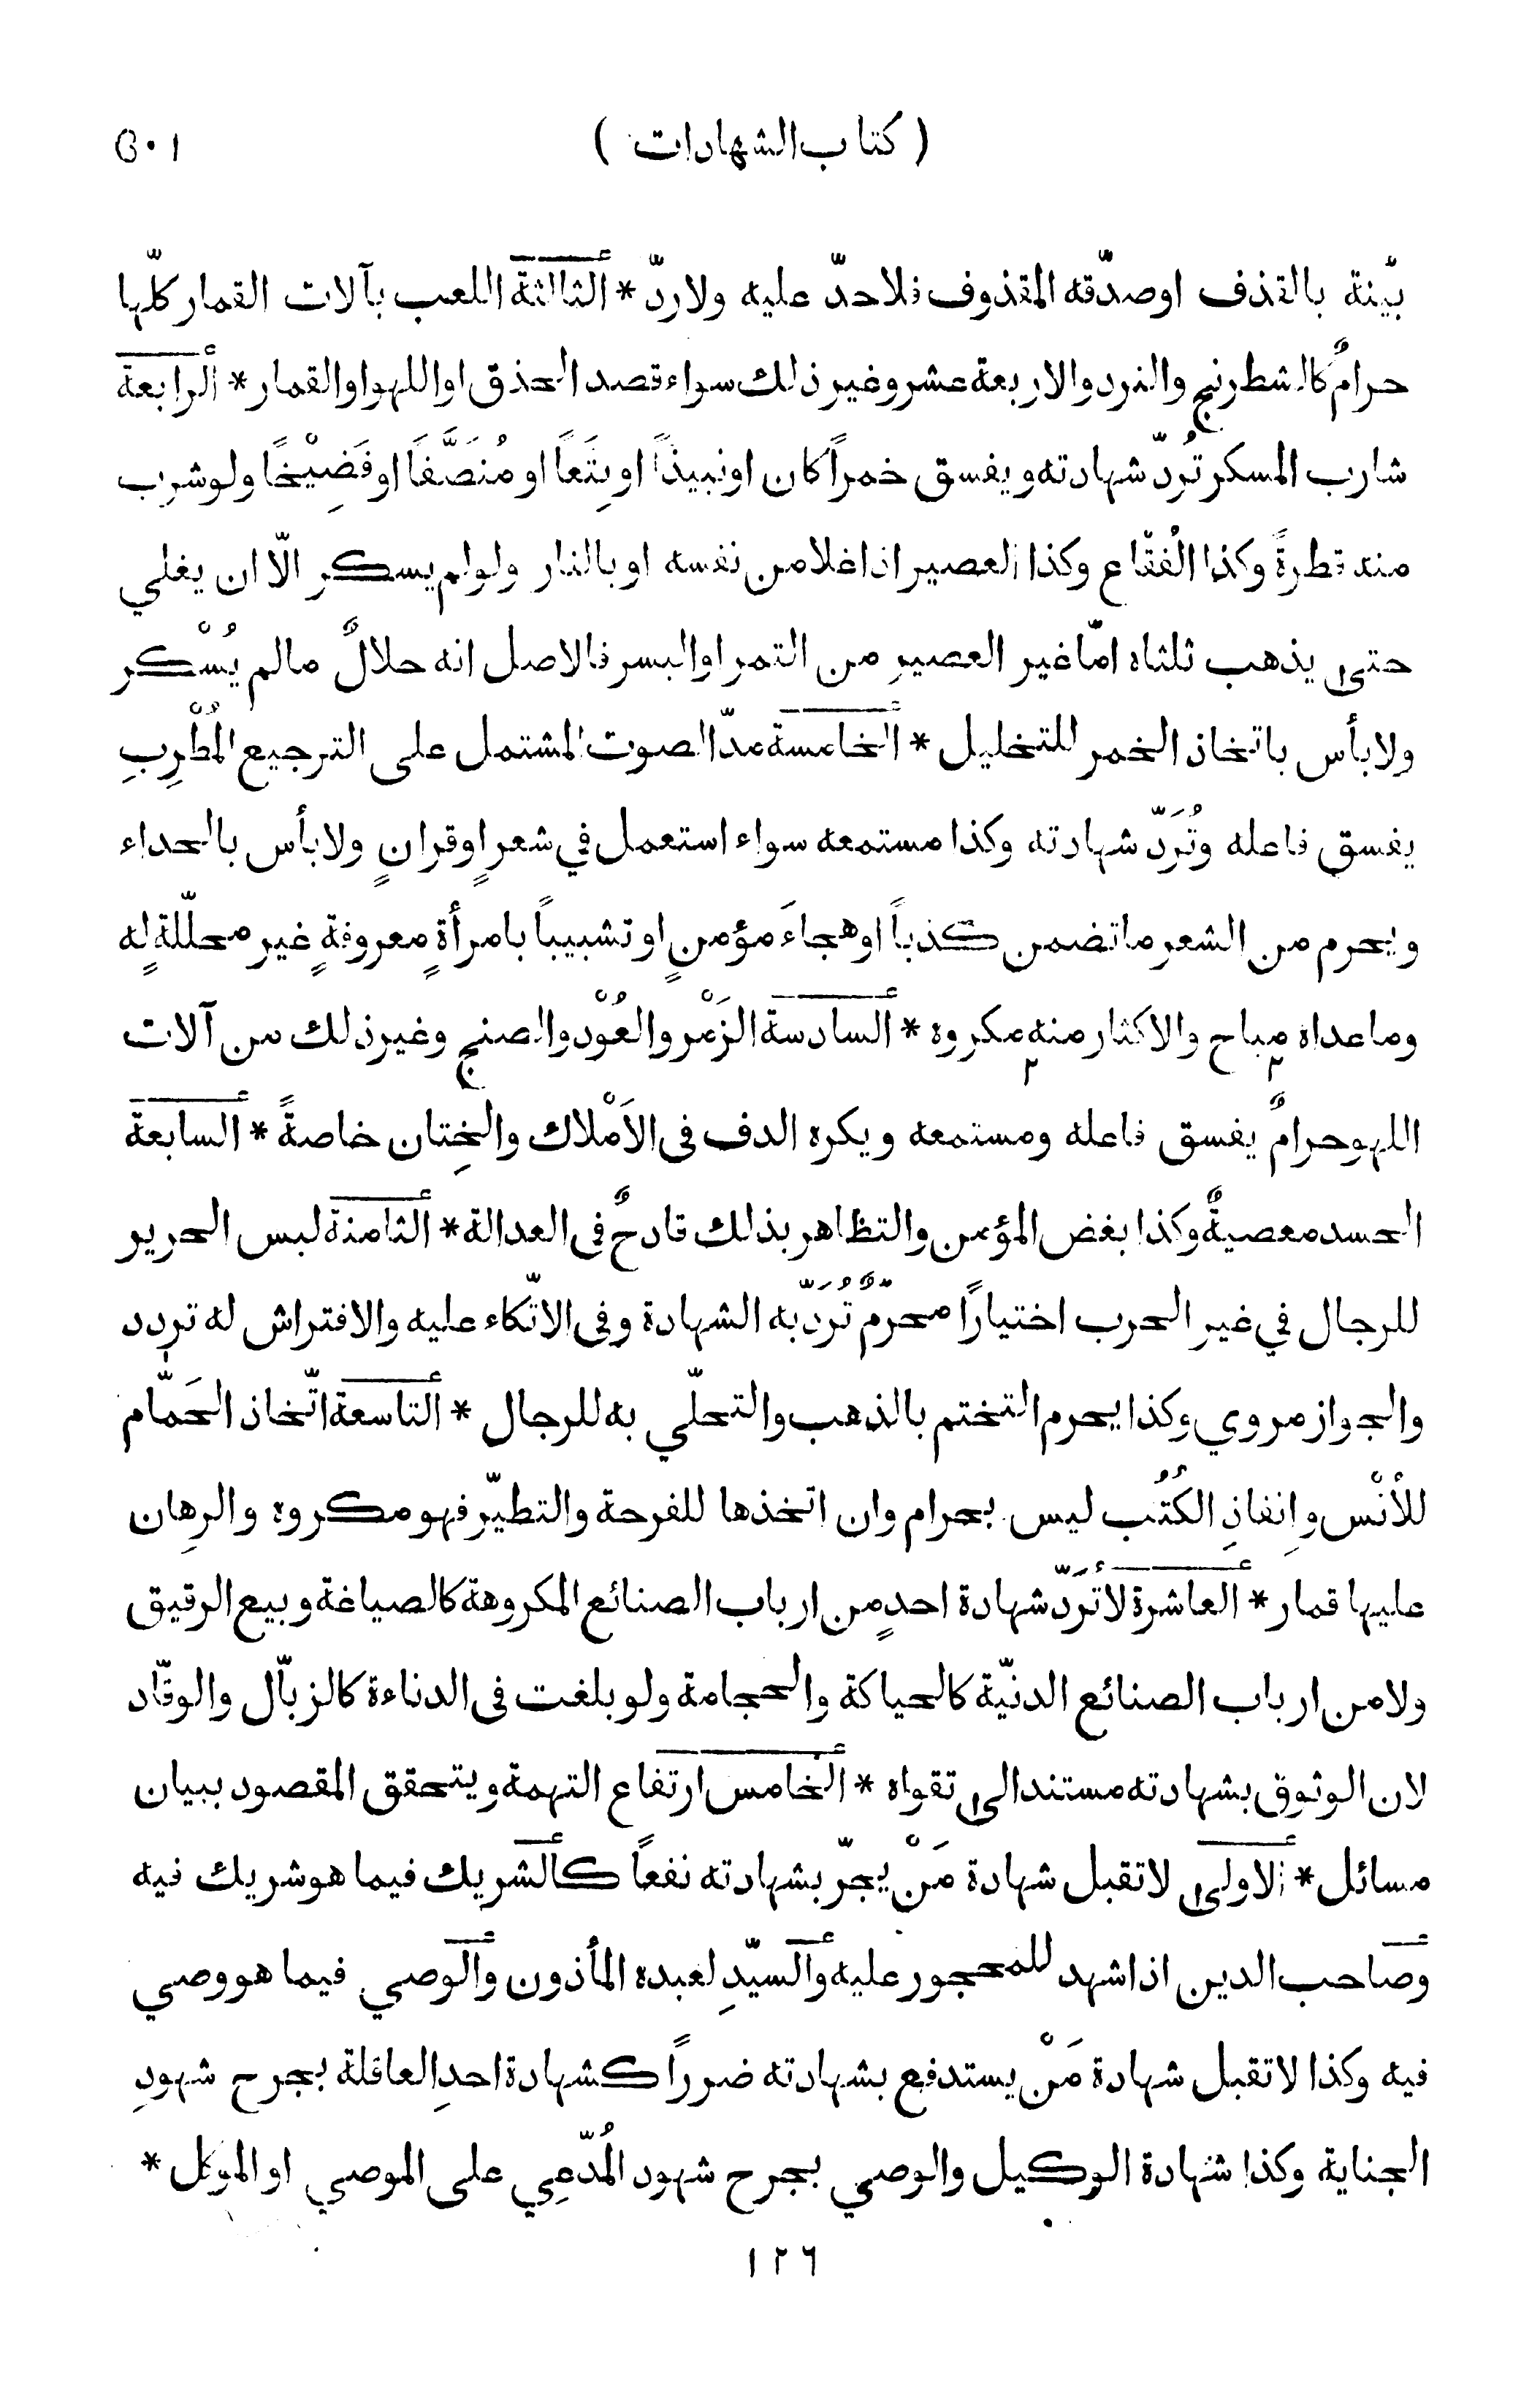 ( كتاب الشهادات ) ٥٠١
بيّنة بالقذف او صدّقه المقذوف فلا حدّ عليه ولا ردّ * الثالثة اللعب بآلات القمار كلّها
حرامٌ كالشطرنج والنرد والاربعة عشر وغير ذلك سواء قصد الحذق او اللهو او القمار * الرابعة
شارب المسكر تُردّ شهادته ويفسق خمراً كان او نبيذاً او بِتَعاً او مُنَصَّفاً او فَضِيْخًا ولو شرب
منه قطرةً وكذا الُفقّاع وكذا العصير اذا غلا من نفسه او بالنار ولو لم يسكر الّا ان يغلي
حتى يذهب ثلثاه امّا غير العصير من التمر او البسر فالاصل انه حلالٌ ما لم يُسْكر
ولا بأس باتخاذ الخمر للتخليل * الخامسة مدّ الصوت المشتمل على الترجيع المُطْرِبِ
يفسق فاعله وتُرَدّ شهادته وكذا مستمعه سواء استعمل في شعرٍ او قرانٍ ولا بأس بالحداء
ويحرم من الشعر ما تضمن كذباً او هجاءَ مؤمنٍ او تشبيباً بامرأةٍ معروفةٍ غير محلّلةٍ له
وما عداه مباح والاكثار منه مكروه * السادسة الزَمْر والعُوْد والصنج وغير ذلك من آلات
اللهو حرامٌ يفسق فاعله ومستمعه ويكره الدف فى الاَمْلاك والخِتان خاصةً * السابعة
الحسد معصيةٌ وكذا بغض المؤمن والتظاهر بذلك قادحٌ فى العدالة * الثامنة لبس الحرير
للرجال في غير الحرب اختيارًا محرّمٌ تُرَدّ به الشهادة وفى الاتّكاء عليه والافتراش له تردد
والجواز مروي وكذا يحرم التختم بالذهب والتحلّي به للرجال * التاسعة اتّخاذ الحَمّام
للأنْس وإنفاذِ الكُتُب ليس بحرام وان اتخذها للفرحة والتطيّر فهو مكروه والرِهان
عليها قمار * العاشرة لا تُرَدّ شهادة احدٍ من ارباب الصنائع المكروهة كالصياغة وبيع الرقيق
ولا من ارباب الصنائع الدنّية كالحياكة والحجامة ولو بلغت فى الدناءة كالزبّال والوقّاد
لان الوثوق بشهادته مستند الى تقواه * الخامس ارتفاع التهمة ويتحقق المقصود ببيان
مسائل * الاولى لا تقبل شهادة مَنْ يجرّ بشهادته نفعاً كالشريك فيما هو شريك فيه
وصاحب الدين اذا شهد للمحجور عليه والسيّدِ لعبده المأذون والوصي فيما هو وصي
فيه وكذا لا تقبل شهادة مَنْ يستدفع بشهادته ضررًا كشهادة احدِ العاقلة بجرح شهودِ
الجناية وكذا شهادة الوكيل والوصي بجرح شهود المُدّعِي على الموصي او الموكل *
١٢٦